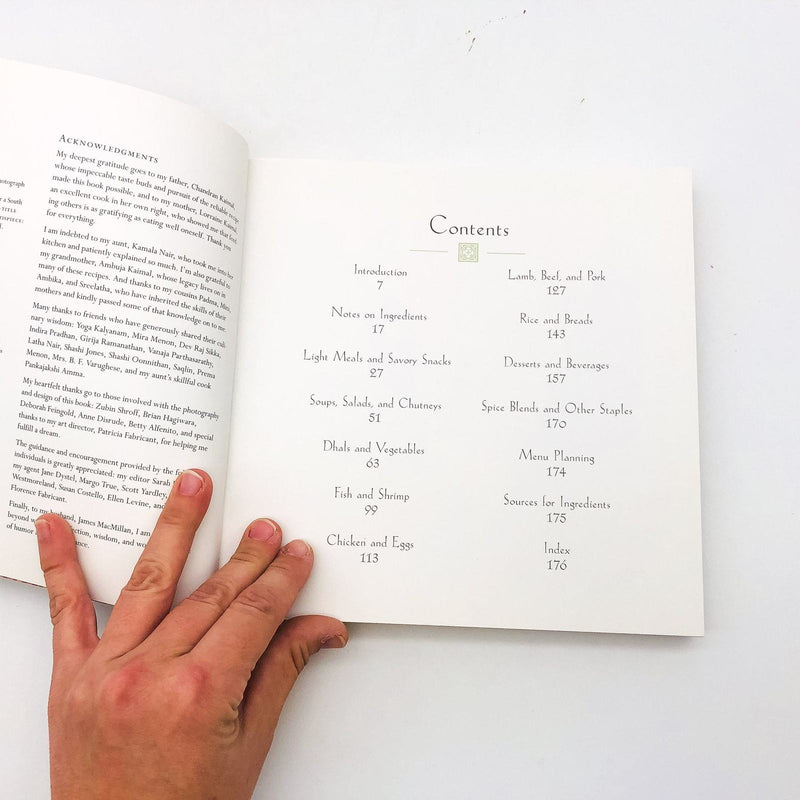 otograph
r a South
-TITLE
TISPIECE:
ACKNOWLEDGMENTS
My deepest gratitude goes to my father, Chandran Kaimal,
whose impeccable taste buds and pursuit of the reliable recipe
made this book possible, and to my mother, Lorraine Kaimal,
an excellent cook in her own right, who showed me that feed-
ing others is as gratifying as eating well oneself. Thank you
for everything.
I am indebted to my aunt, Kamala Nair, who took me into her
kitchen and patiently explained so much. I'm also grateful to
my grandmother, Ambuja Kaimal, whose legacy lives on in
many of these recipes. And thanks to my cousins Padma, Mini,
Ambika, and Sreelatha, who have inherited the skills of their
mothers and kindly passed some of that knowledge on to me.
Many thanks to friends who have generously shared their culi-
nary wisdom: Yoga Kalyanam, Mira Menon, Dev Raj Sikka,
Indira Pradhan, Girija Ramanathan, Vanaja Parthasarathy,
Latha Nair, Shashi Jones, Shashi Oonnithan, Saqlin, Prema
Menon, Mrs. B. F. Varughese, and my aunt's skillful cook
Pankajakshi Amma.
My heartfelt thanks go to those involved with the photography
and design of this book: Zubin Shroff, Brian Hagiwara,
Deborah Feingold, Anne Disrude, Betty Alfenito, and special
thanks to my art director, Patricia Fabricant, for helping me
fulfill a dream.
The guidance and encouragement provided by the fo
individuals is greatly appreciated: my editor Sarah
my agent Jane Dystel, Margo True, Scott Yardley,
Westmoreland, Susan Costello, Ellen Levine, and
Florence Fabricant.
Finally, to my husband, James MacMillan, I am
beyond w ction, wisdom, and
of humor ance.
Contents
Introduction
7
Notes on Ingredients
17
Light Meals and Savory Snacks
27
Soups, Salads, and Chutneys
51
Dhals and Vegetables
63
Fish and Shrimp
99
Chicken and Eggs
113
Lamb, Beef, and Pork
127
Rice and Breads
143
Desserts and Beverages
157
Spice Blends and Other Staples
170
Menu Planning
174
Sources for Ingredients
175
Index
176